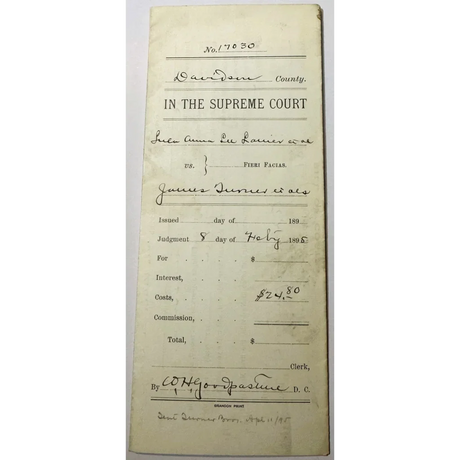 No. 17030
Davidson County.
IN THE SUPREME COURT
Anna Lee Lanier et al
vs. } FIERI FACIAS.
James Turner et als
Issued day of 189
Judgment 8 day of Feby 1895
For $
Interest,
Costs, $24.80
Commission,
Total, $
Clerk,
By W. H. Goodpasture D. C.
BRANDON PRINT
Sent Turner Bros. Apl 11/95